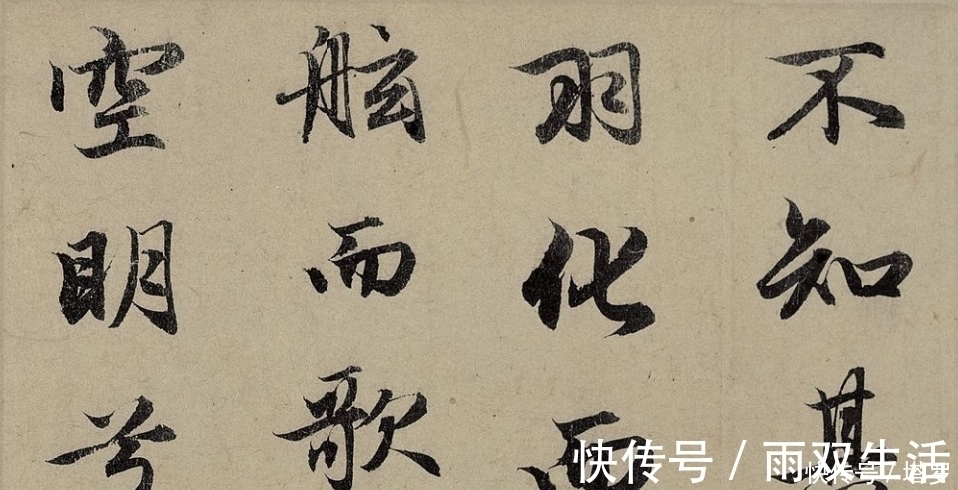 不知其
羽化而
舷而歌
空明兮
快传号 / 雨双生活